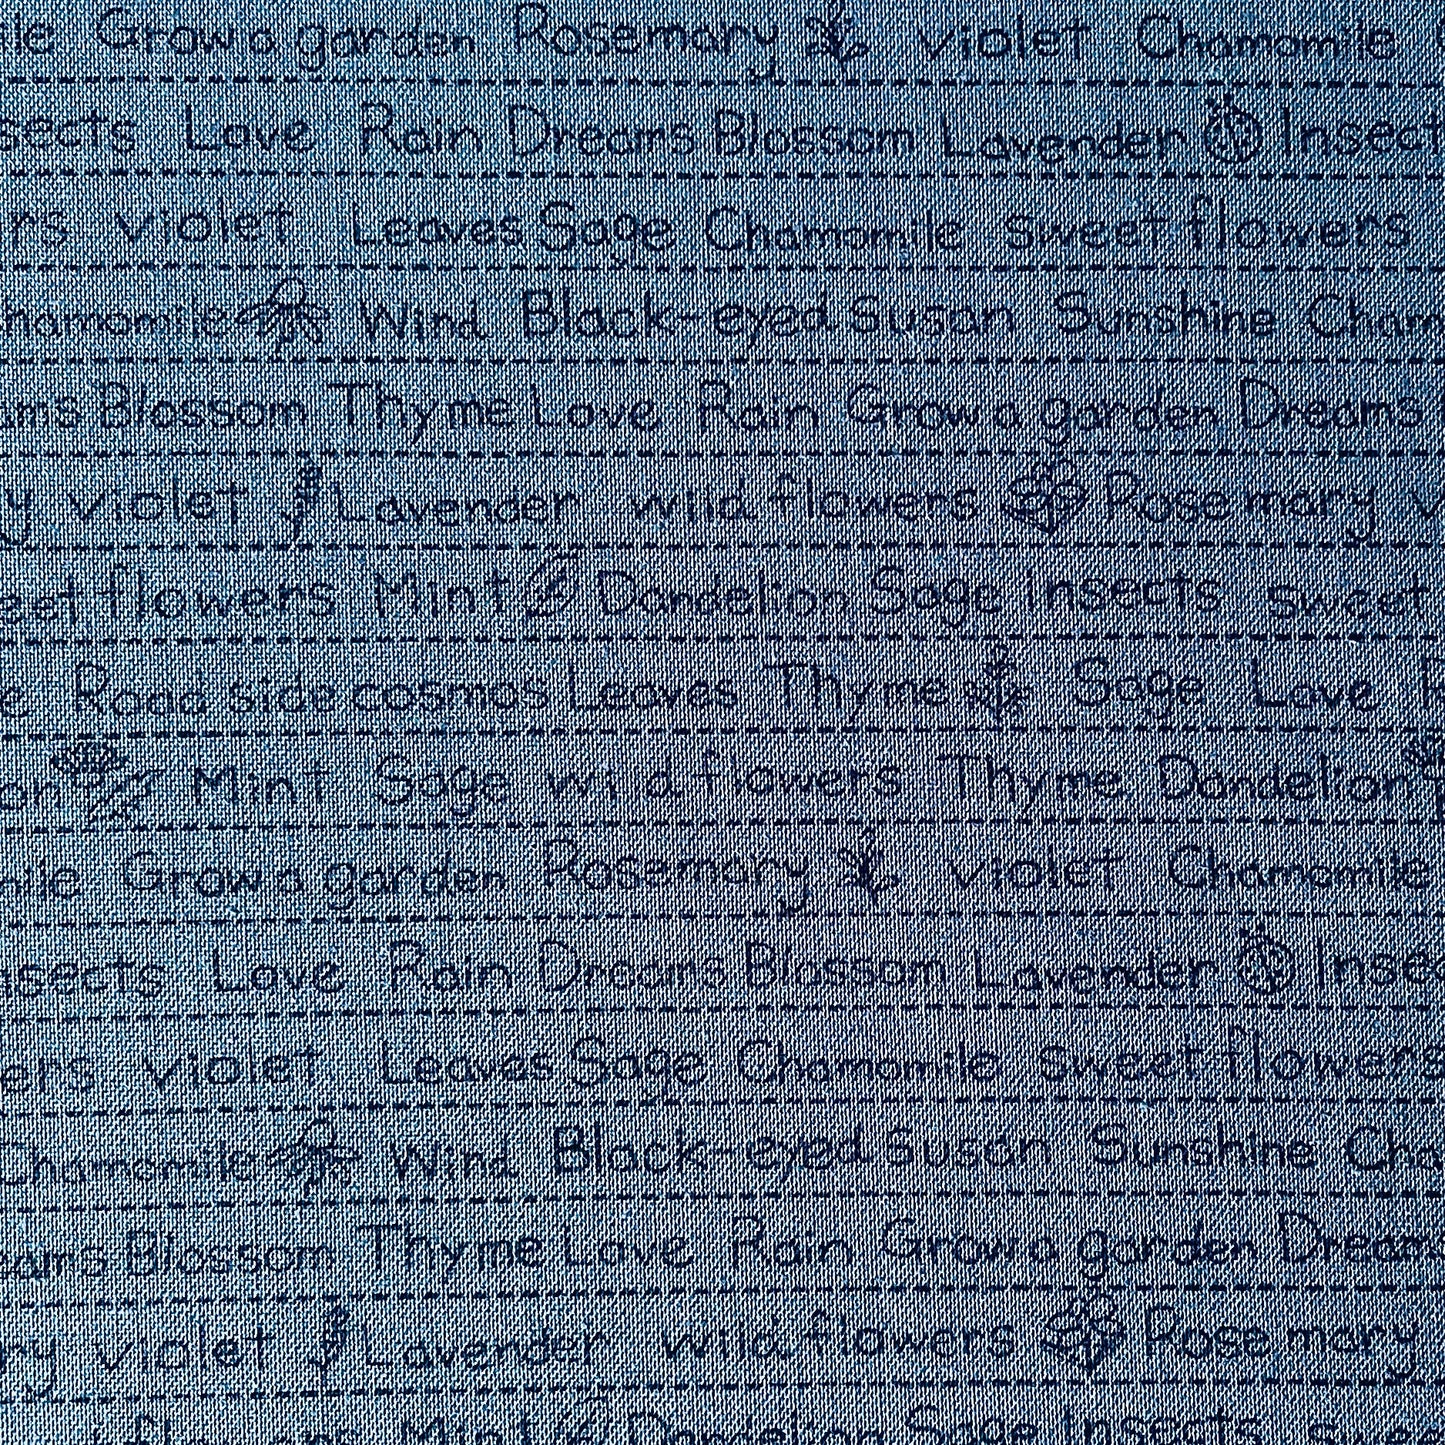 ile Grow a garden Rosemary violet Chamomile
sects Love Rain Dreams Blossom Lavender Insect
rs violet Leaves Sage Chamomile sweet flowers
hamomile Wind Black-eyed Susan Sunshine Cham
ams Blossom Thyme Love Rain Grow a garden Dreams
y violet Lavender wild flowers Rosemary v
eet flowers Mint Dandelion Sage Insects sweet
e Road side cosmos Leaves Thyme Sage Love R
on Mint Sage wild flowers Thyme Dandelion
mile Grow a garden Rosemary violet Chamomile
nsects Love Rain Dreams Blossom Lavender Inse
ers violet Leaves Sage Chamomile sweet flowers
Chamomile Wind Black-eyed Susan Sunshine Cha
eams Blossom Thyme Love Rain Grow a garden Dreams
ry violet Lavender wild flowers Rosemary
flowers Mint Dandelion Sage Insects swee